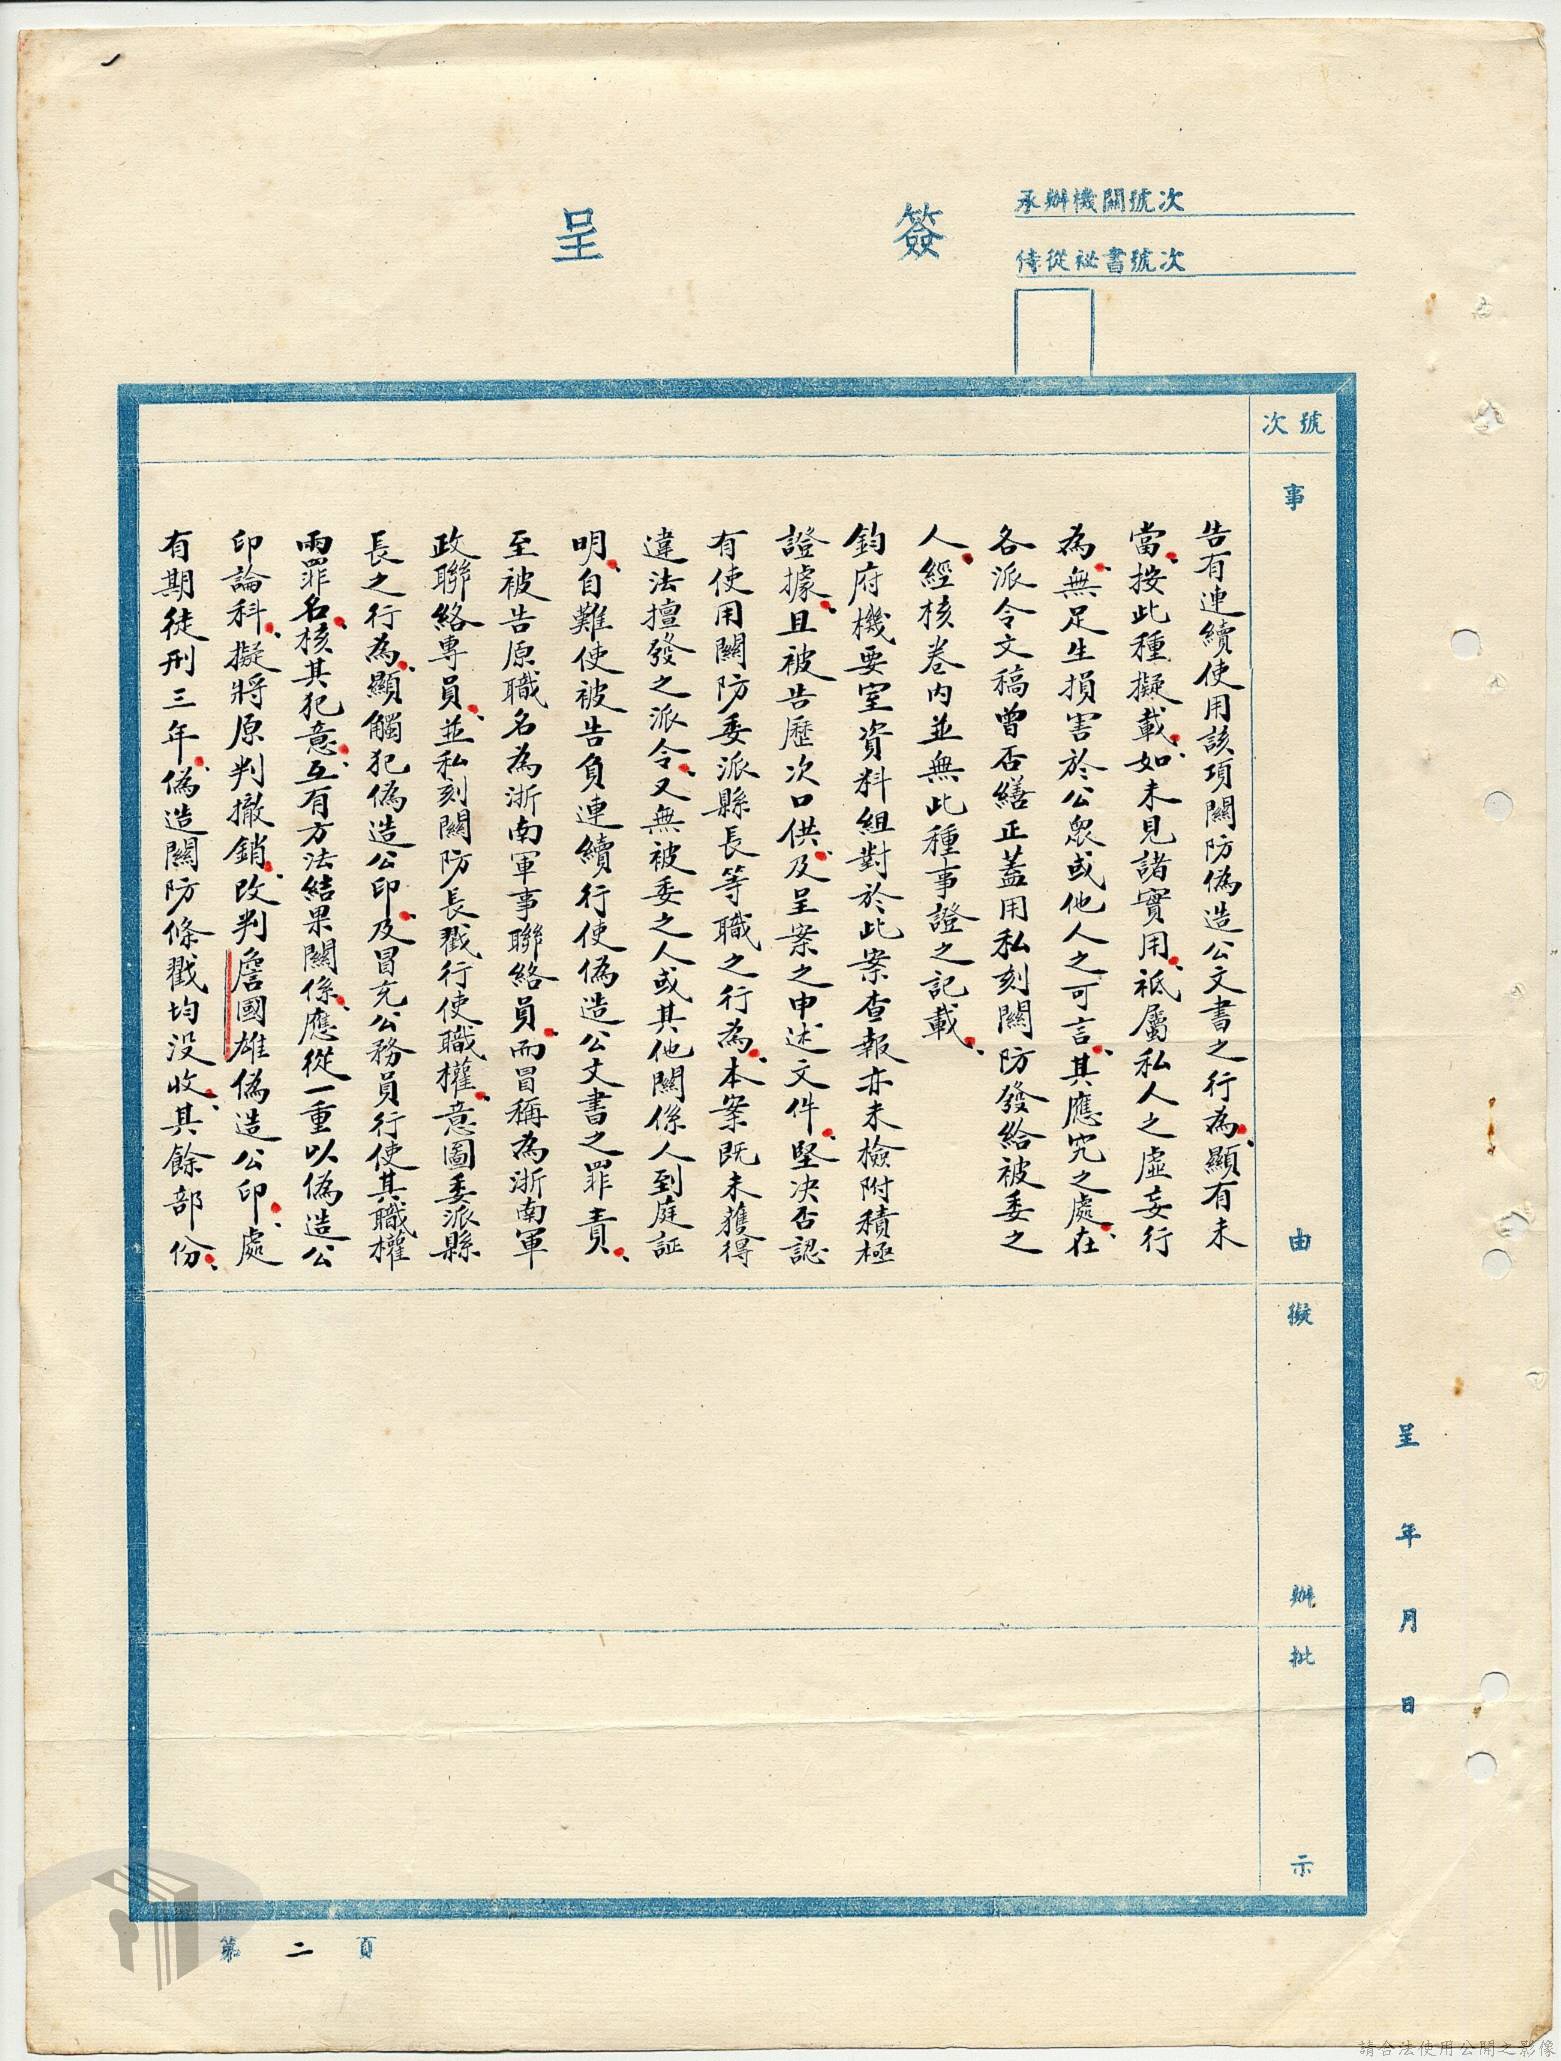 簽呈
承辦機關號次
侍從祕書號次
號次
事由
擬辦
批示
呈 年 月 日
告有連續使用該項關防偽造公文書之行為、顯有未
當、按此種擬載、如未見諸實用、祇屬私人之虛妄行
為、無足生損害於公眾或他人之可言、其應究之處、在
各派令文稿曾否繕正蓋用私刻關防發給被委之
人、經核卷內並無此種事證之記載、
鈞府機要室資料組對於此案查報亦未檢附積極
證據、且被告歷次口供、及呈案之申述文件、堅決否認
有使用關防委派縣長等職之行為、本案既未獲得
違法擅發之派令、又無被委之人或其他關係人到庭証
明、自難使被告負連續行使偽造公文書之罪責、
至被告原職名為浙南軍事聯絡員、而冒稱為浙南軍
政聯絡專員、並私刻關防長戳行使職權、意圖委派縣
長之行為、顯觸犯偽造公印、及冒充公務員行使其職權
兩罪名、核其犯意、互有方法結果關係、應從一重以偽造公
印論科、擬將原判撤銷、改判詹國雄偽造公印、處
有期徒刑三年、偽造關防條戳均沒收、其餘部份、
第二頁
請合法使用公開之影像